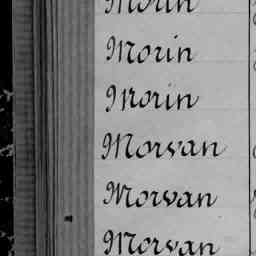 Morin
Morin
Morin
Morvan
Morvan
Morvan